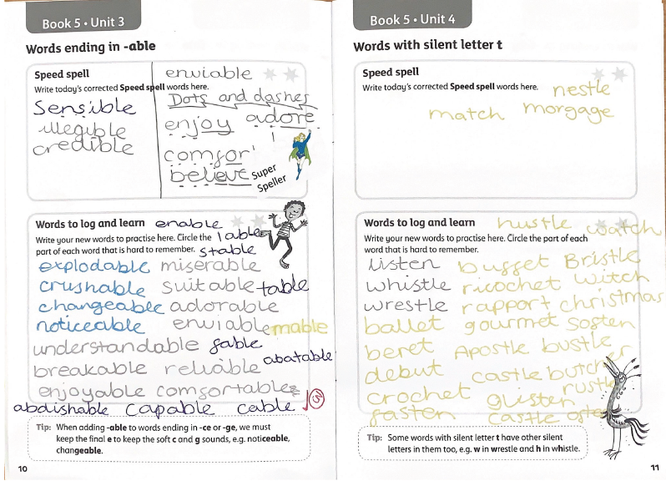 Book 5 • Unit 3
Words ending in -able
Speed spell
Write today's corrected Speed spell words here.
Sensible
illegible
credible
enviable
Dots and dashes
enjoy adore
comfor
believe
Super
Speller
Words to log and learn enable
Write your new words to practise here. Circle the lable
part of each word that is hard to remember. stable
explodable miserable
crushable suitable table
changeable adorable
noticeable enviable mable
understandable fable
breakable reliable abatable
enjoyable comfortable
abdishable capable cable
Tip: When adding -able to words ending in -ce or -ge, we must
keep the final e to keep the soft c and g sounds, e.g. noticeable,
changeable.
10
Book 5 • Unit 4
Words with silent letter t
Speed spell
Write today's corrected Speed spell words here. nestle
match morgage
Words to log and learn hustle watch
Write your new words to practise here. Circle the part of each
word that is hard to remember.
listen buffet Bristle
whistle ricochet witch
wrestle rapport christmas
ballet gourmet soften
beret Apostle bustle
debut castle butcher
crochet glisten rustle
fasten castle often
Tip: Some words with silent letter t have other silent
letters in them too, e.g. w in wrestle and h in whistle.
11